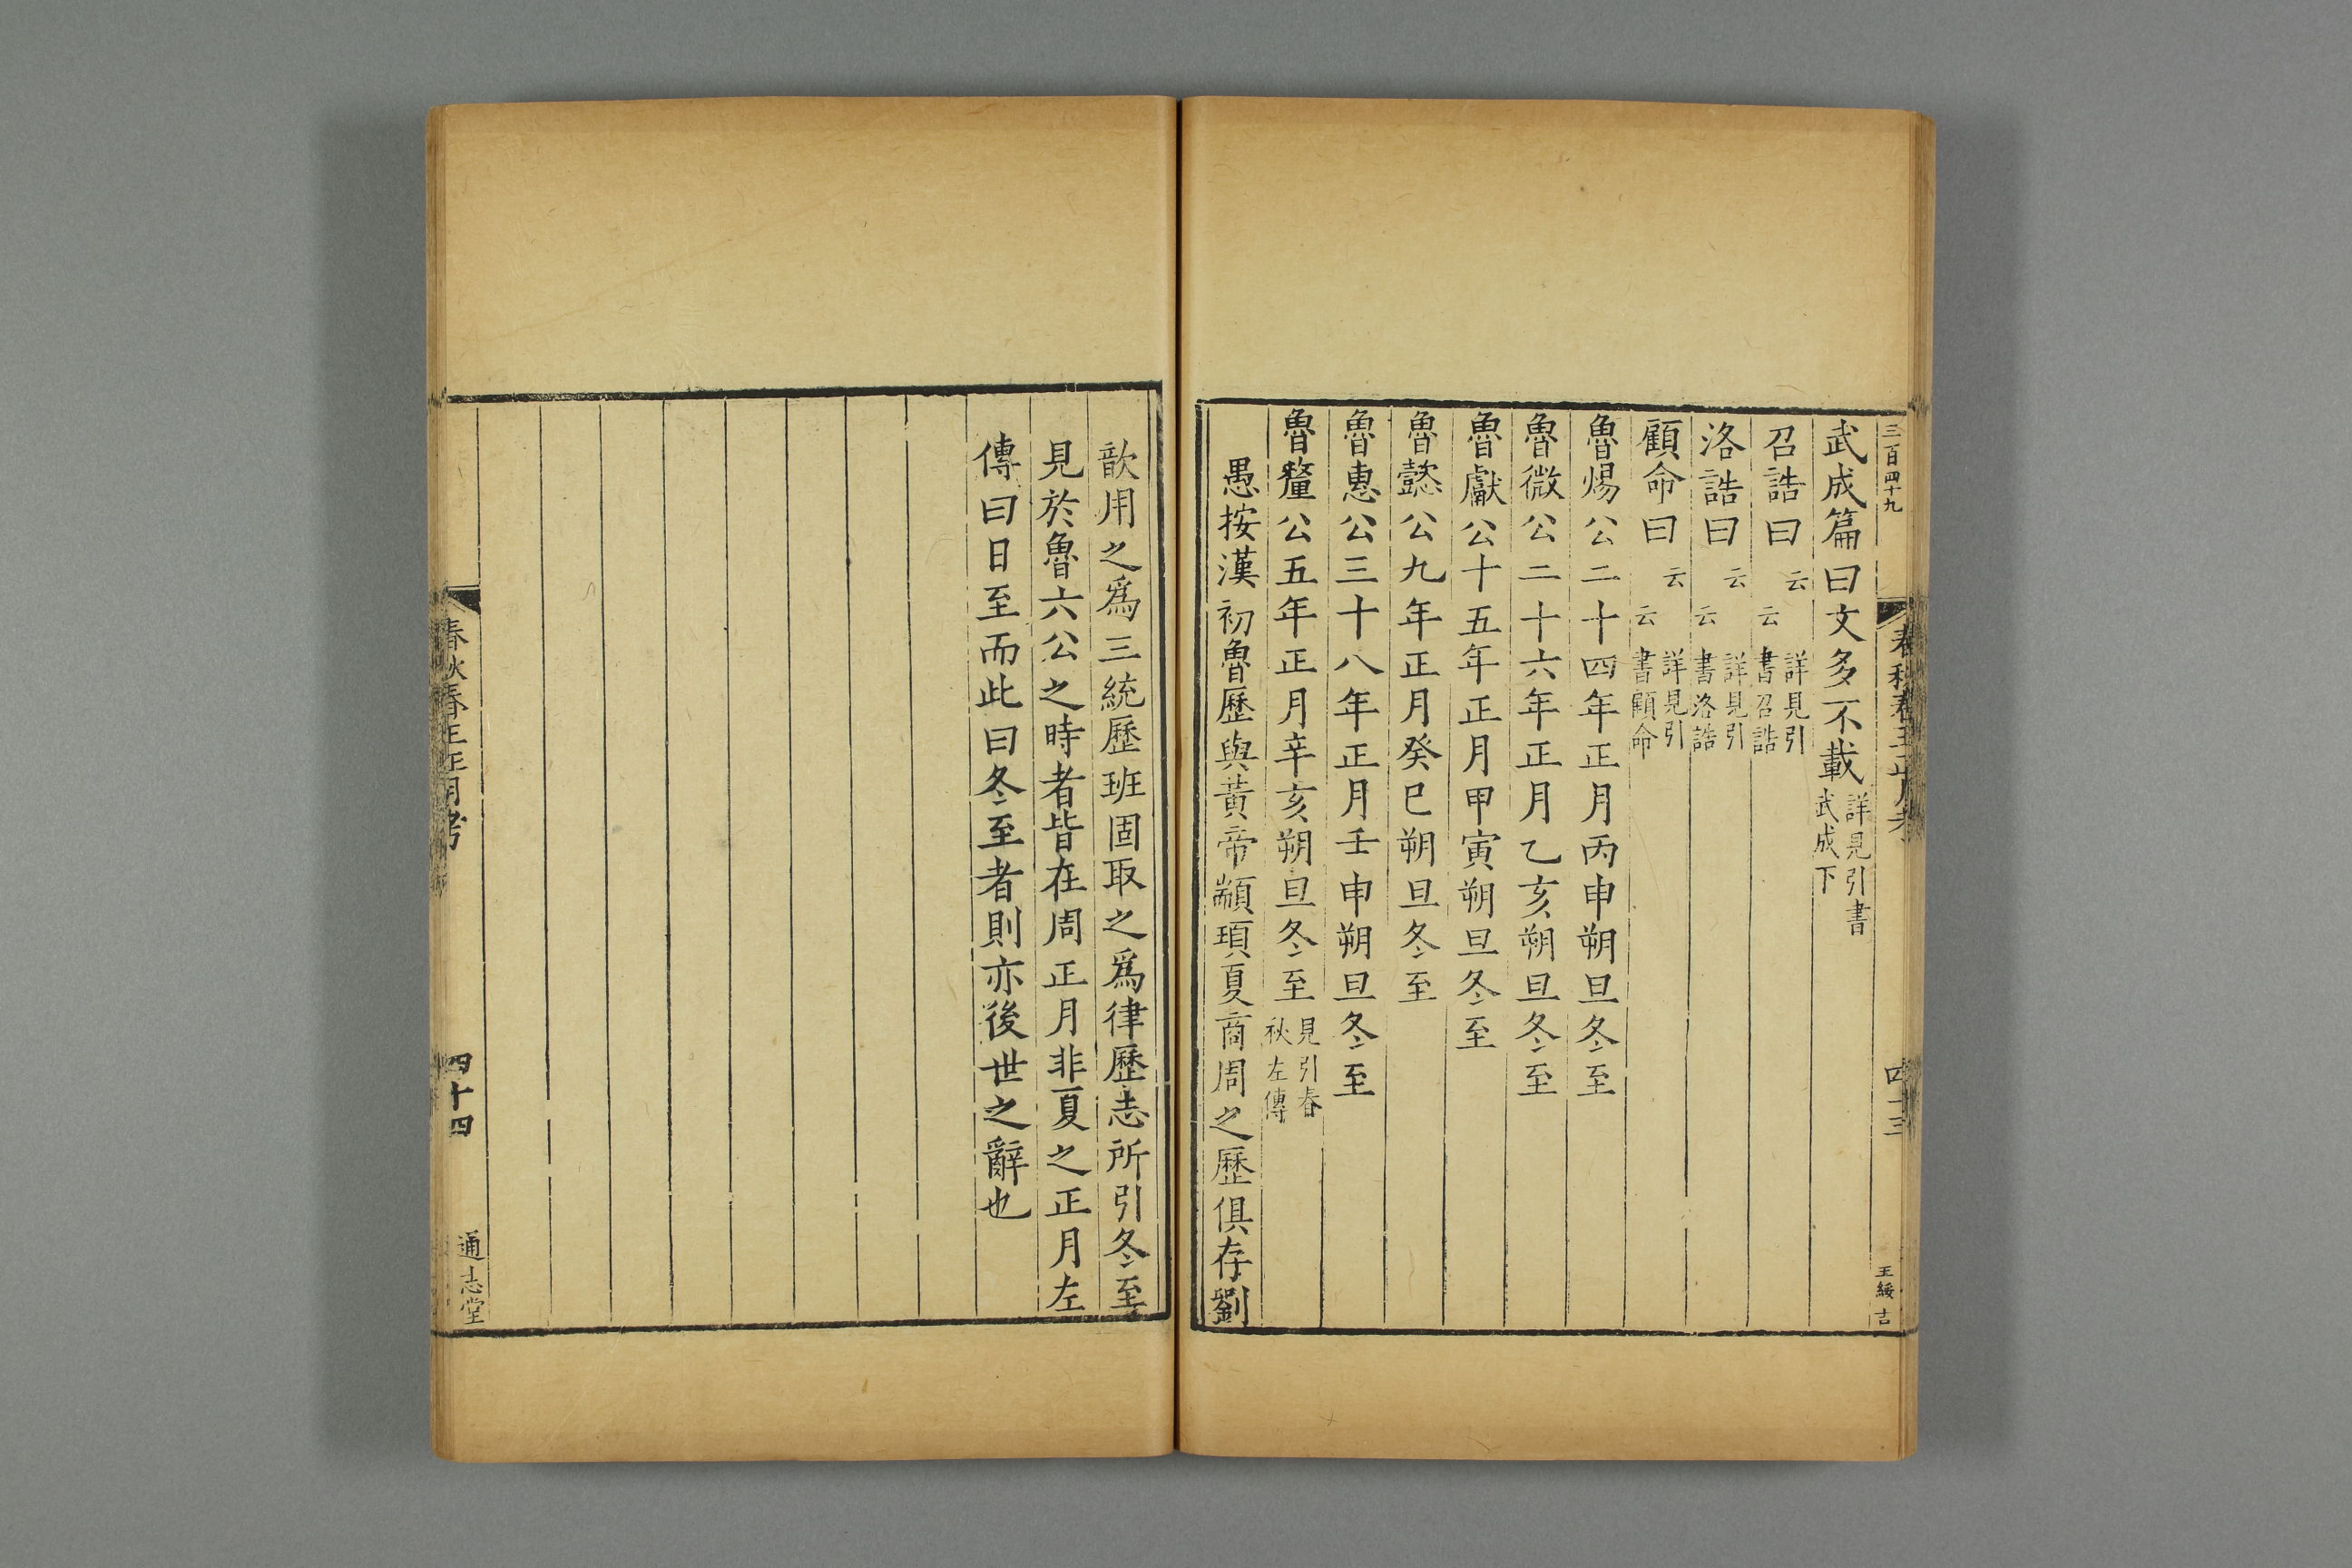 三百四十九
武成篇曰文多不載詳見引書武成下
召誥曰云云詳見引書召誥
洛誥曰云云詳見引書洛誥
顧命曰云云詳見引書顧命
魯煬公二十四年正月丙申朔旦冬至
魯微公二十六年正月乙亥朔旦冬至
魯獻公十五年正月甲寅朔旦冬至
魯懿公九年正月癸巳朔旦冬至
魯惠公三十八年正月壬申朔旦冬至
魯釐公五年正月辛亥朔旦冬至見引春秋左傳
愚按漢初魯歷與黃帝顓頊夏商周之歷俱存劉
春秋春王正月考
四十三
王綏 吉
歆用之爲三統歷班固取之爲律歷志所引冬至
見於魯六公之時者皆在周正月非夏之正月左
傳曰日至而此曰冬至者則亦後世之辭也
春秋春王正月考
四十四
通志堂